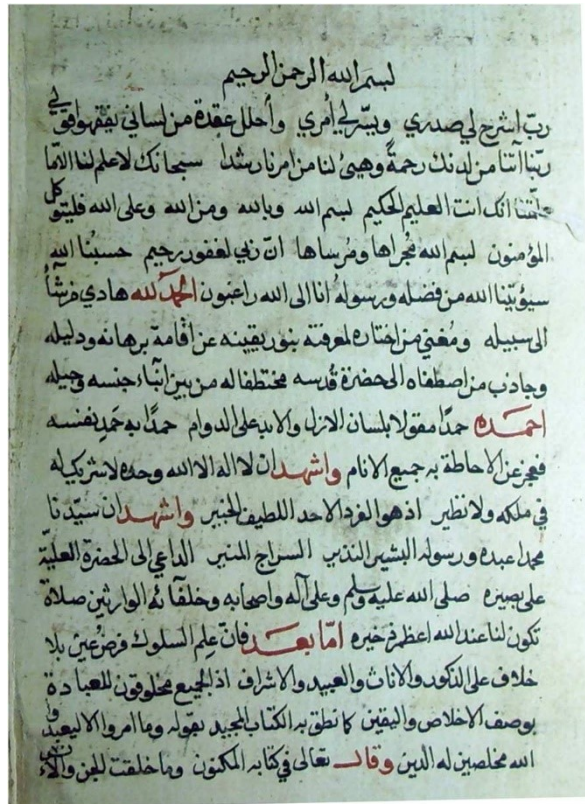 بسم الله الرحمن الرحيم
ربّ اشرح لي صدري ويسّر لي أمري وأحلل عقدة من لساني يفقهوا قولي
ربّنا آتنا من لدنك رحمةً وهيئ لنا من امرنا رشدا سبحانك لا علم لنا الا ما
علّمتنا انك انت العليم الحكيم بسم الله وبالله ومن الله وعلى الله فليتوكل
المؤمنون بسم الله مجراها ومرساها انّ ربي لغفور رحيم حسبنا الله
سيؤتينا الله من فضله ورسوله انا الى الله راغبون الحمد لله هادي من شآء
الى سبيله ومغني من اختاره لمعرفته بنور يقينه عن اقامة برهانه ودليله
وجاذب من اصطفاه الى حضرة قدسه مختطفا له من بين ابنآء جنسه وجيله
احمده حمدًا مقولا بلسان الازل والابد على الدوام حمدًا به حَمِد نفسه
فعجز عن الاحاطة به جميع الانام واشهد ان لا اله الا الله وحده لا شريك له
في ملكه ولا نظير اذ هو الفرد الاحد اللطيف الخبير واشهد ان سيّدنا
محمدا عبده ورسوله البشير النذير السراج المنير الداعي الى الحضرة العليّة
على بصيره صلى الله عليه وسلم وعلى آله واصحابه وخلفآئه الوارثين صلاة
تكون لنا عند الله اعظم ذخيره امّا بعد فانّ علم السلوك فرض عين بلا
خلاف على الذكور والاناث والعبيد والاشراف اذ الجميع مخلوقون للعبادة
بوصف الاخلاص واليقين كما نطق به الكتاب المجيد بقوله وما امروا الا ليعبدوا
الله مخلصين له الدين وقال تعالى في كتابه المكنون وما خلقت الجن والانس